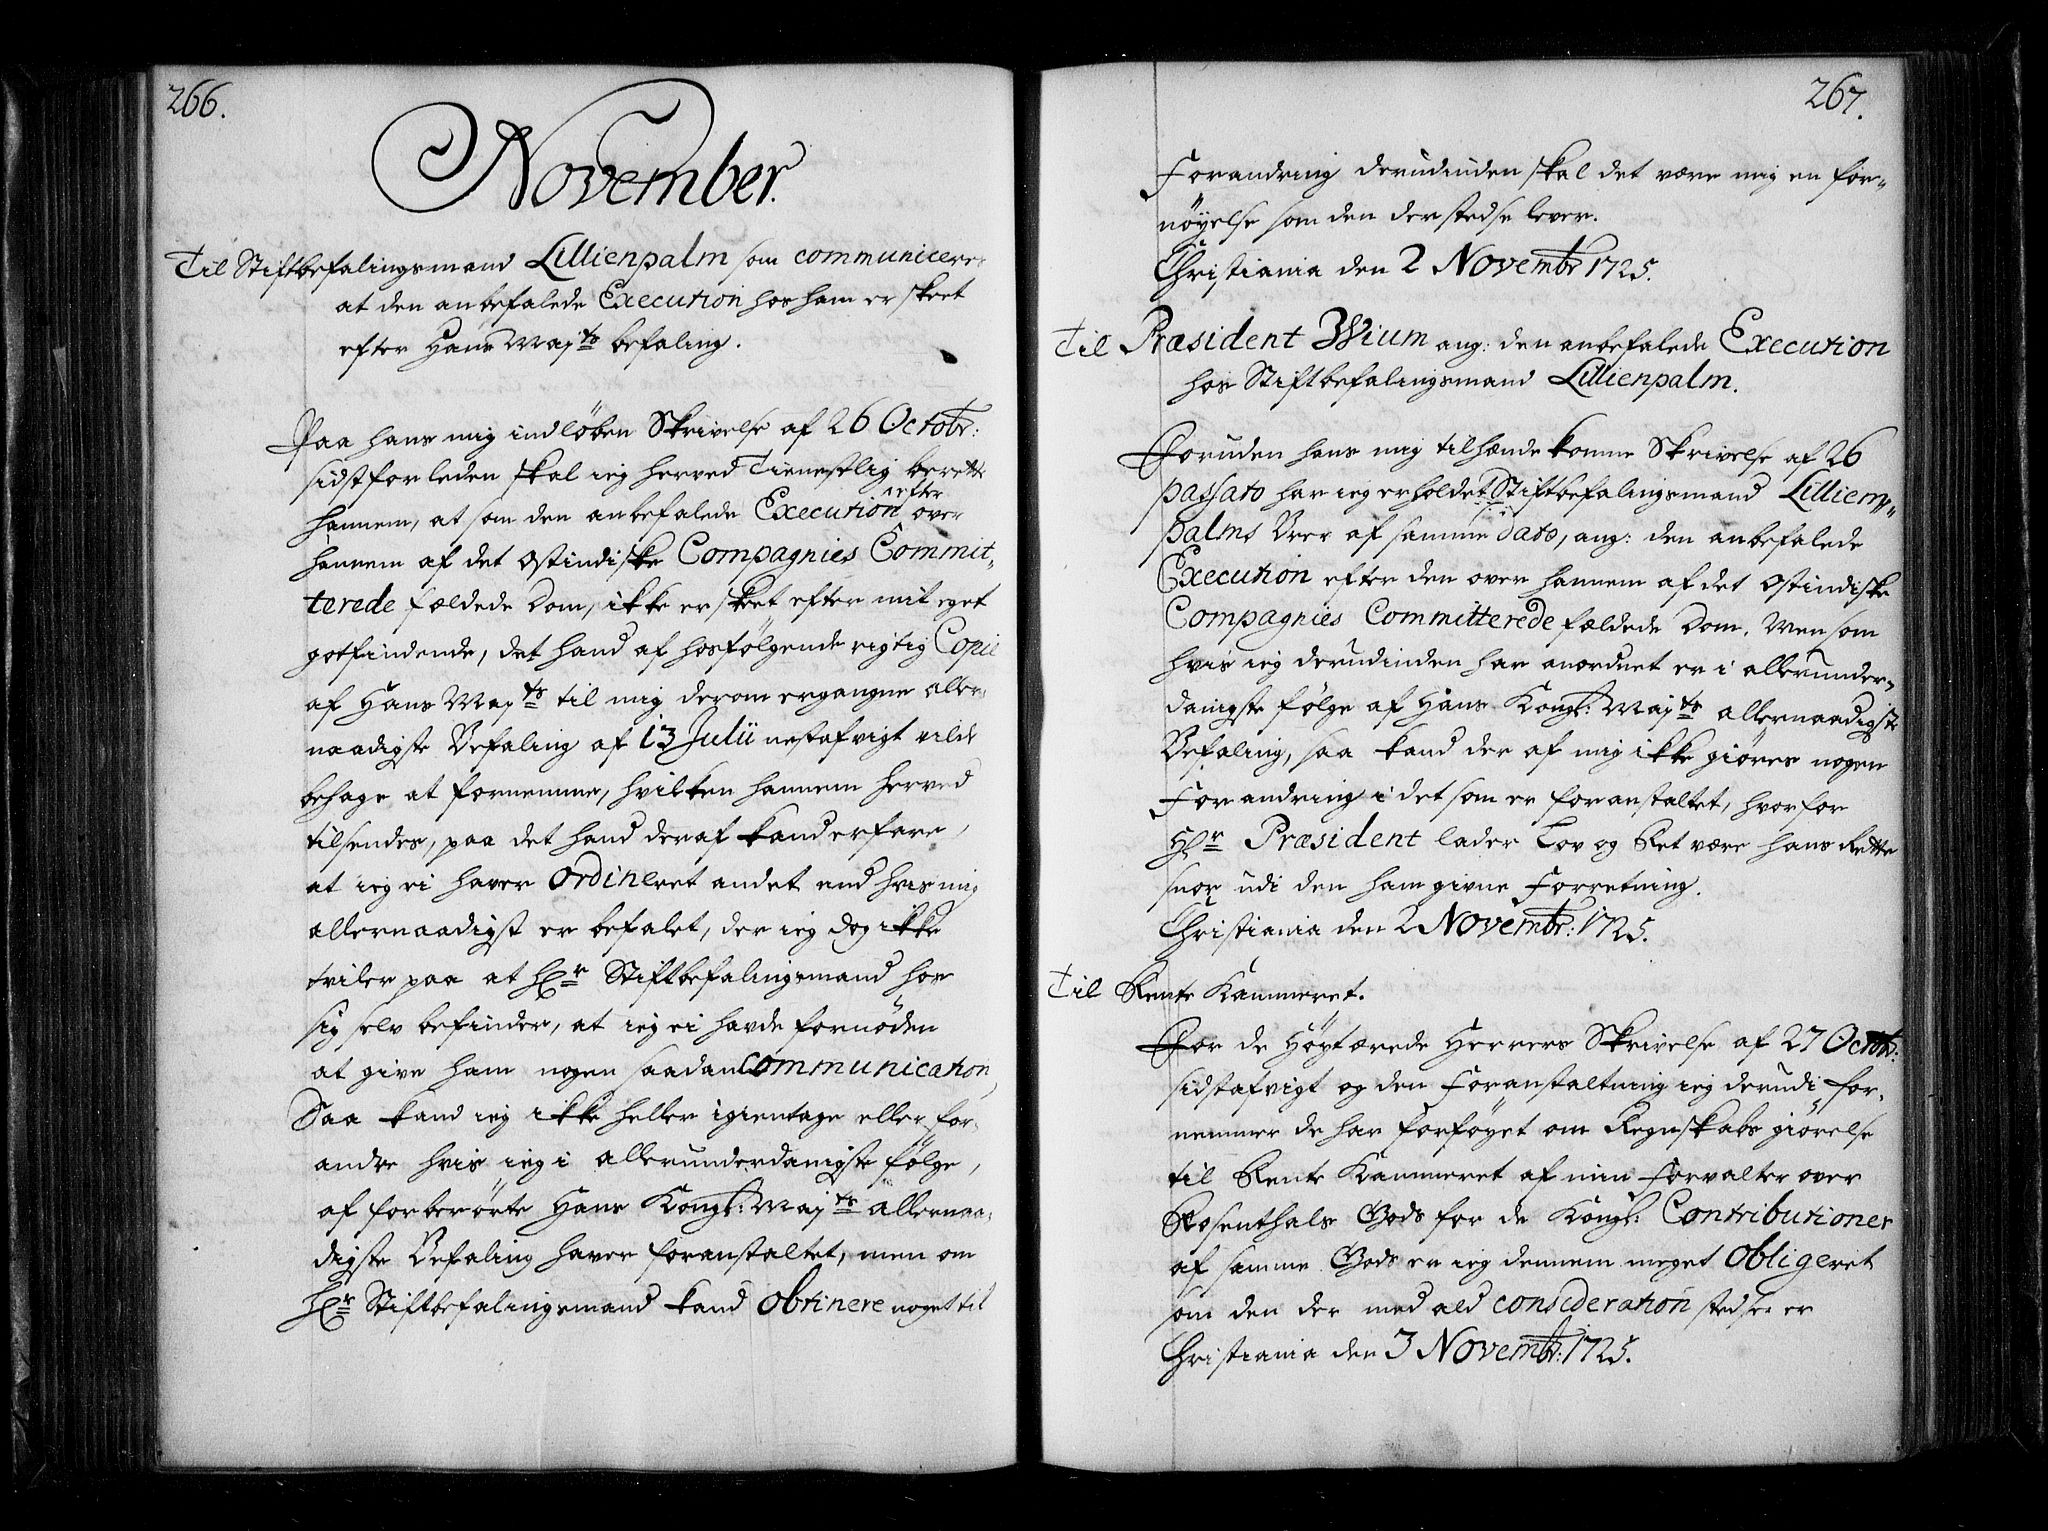 266.
November.
Til Stiftbefalingsmand Lillienpalm som communiceres
at den anbefalede Execution hos ham er skeet
efter Hans Majts befaling.
Paa hans mig indløben Skrivelse af 26 Octobr:
sidstforleden skal ieg herved Tienestlig berette
hannem, at som den anbefalede Execution efter over
hannem af det Ostindiske Compagnies Commit-
terede fældede Dom, ikke er skeet efter mit eget
gotfindende, det hand af hosfølgende rigtig Copie
af Hans Majts til mig derom ergangne aller-
naadigste Befaling af 13 Julii nestafvigt vilde
behage at fornemme, hvilken hannem herved
tilsendes, paa det hand deraf kand erfare,
at ieg ei haver ordineret andet end hvis mig
allernaadigst er befalet, der ieg dog ikke
tviler paa at Hr Stiftbefalingsmand hos
sig selv befinder, at ieg ei havde fornøden
at give ham nogen saadan communication,
Saa kand ieg ikke heller igientage eller for-
andre hvis ieg i allerunderdanigste følge,
af forberørte Hans Kongl: Majts allernaa-
digste Befaling haver foranstaltet, men om
Hr Stiftbefalingsmand kand obtinere noget til
267.
Forandring derudinden skal det være mig en for-
nøyelse som den der stedse lever.
Christiania den 2 Novembr 1725.
Til Præsident Wium ang: den anbefalede Execution
hos Stiftbefalingsmand Lillienpalm.
Foruden hans mig tilhænde komne Skrivelse af 26
passato har ieg erholdet Stiftbefalingsmand Lillien-
palms Brev af samme dato, ang: den anbefalede
Execution efter den over hannem af det Ostindiske
Compagnies Committerede fældede Dom. Men som
hvis ieg derudinden har anordnet er i allerunder-
danigste følge af Hans Kongl: Majts allernaadigste
Befaling, saa kand der af mig ikke giøres nogen
Forandring i det som er foranstaltet, hvorfor
Hr Præsident lader Lov og Ret være hans Rette
snor udi den ham givne Forretning.
Christiania den 2 Novembr: 1725.
Til Rente Kammeret.
For de Høytærede Herrers Skrivelse af 27 Octobr:
sidstafvigt og den Foranstaltning ieg derudi for-
nemmer de har forføyet om Regnskabs giørelse
til Rente Kammeret af min Forvalter over
Rosenthals Gods for de Kongl: Contributioner
af samme Gods er ieg dennem meget obligeret
som den der med ald consideration stedse er
Christiania den 3 Novembr: 1725.